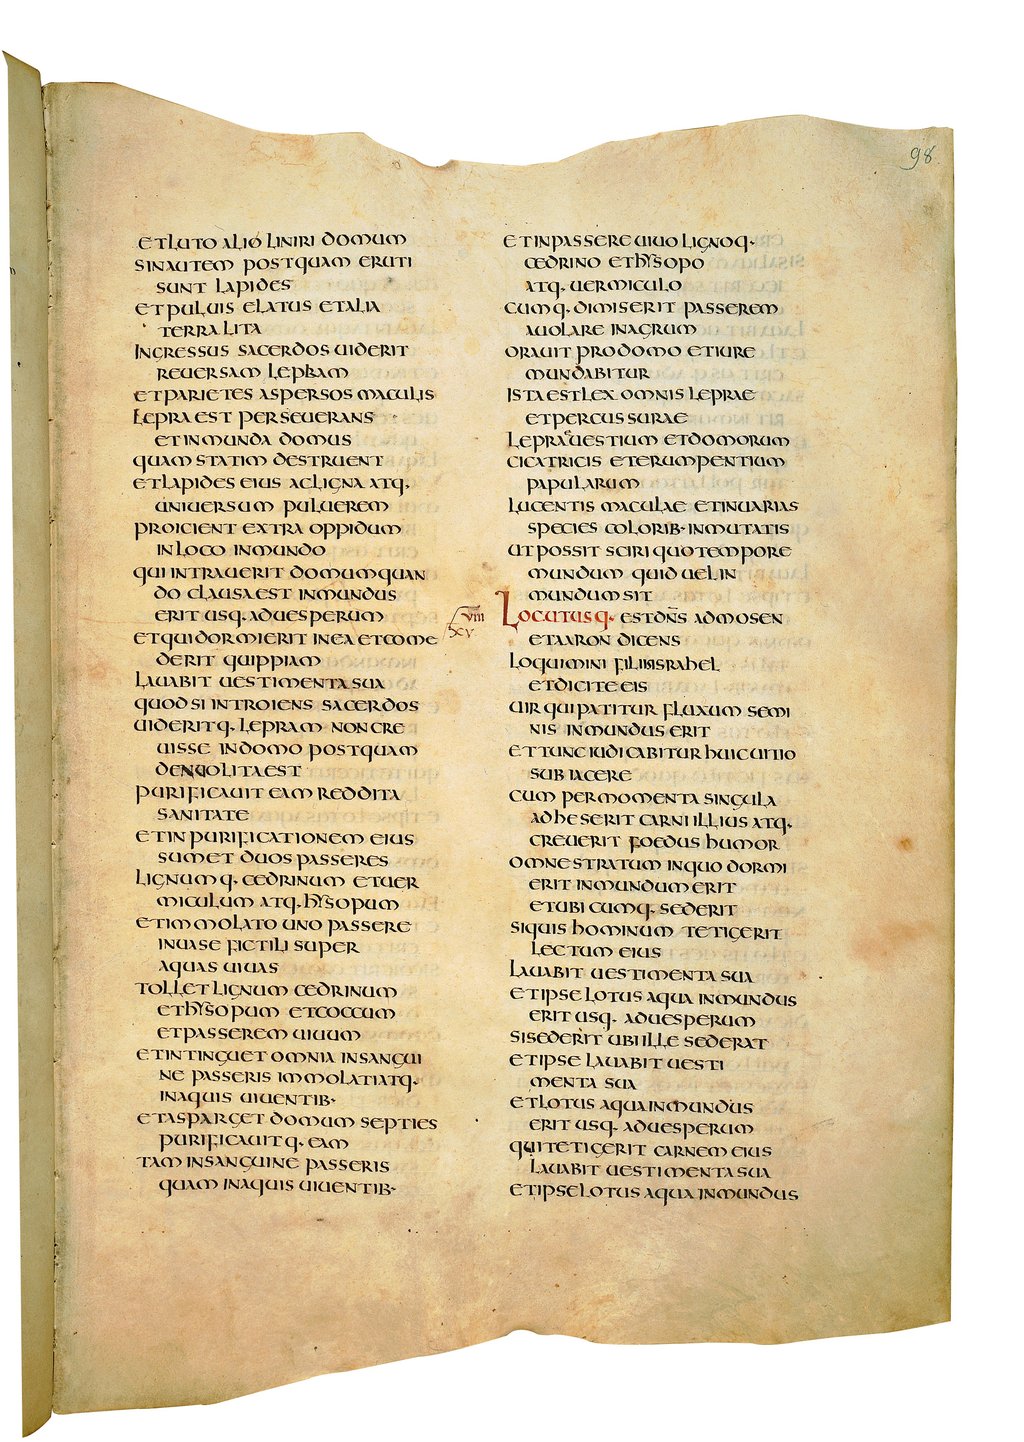 98
ET LUTO ALIO LINIRI DOMUM
SIN AUTEM POSTQUAM ERUTI
SUNT LAPIDES
ET PULUIS ELATUS ET ALIA
TERRA LITA
INGRESSUS SACERDOS UIDERIT
REUERSAM LEPRAM
ET PARIETES ASPERSOS MACULIS
LEPRA EST PERSEUERANS
ET INMUNDA DOMUS
QUAM STATIM DESTRUENT
ET LAPIDES EIUS AC LIGNA ATQ·
UNIUERSUM PULUEREM
PROICIENT EXTRA OPPIDUM
IN LOCO INMUNDO
QUI INTRAUERIT DOMUM QUAN
DO CLAUSA EST INMUNDUS
ERIT USQ· AD UESPERUM
ET QUI DORMIERIT IN EA ET COME
DERIT QUIPPIAM
LAUABIT UESTIMENTA SUA
QUOD SI INTROIENS SACERDOS
UIDERITQ· LEPRAM NON CRE
UISSE IN DOMO POSTQUAM
DENUO LITA EST
PURIFICAUIT EAM REDDITA
SANITATE
ET IN PURIFICATIONEM EIUS
SUMET DUOS PASSERES
LIGNUMQ· CEDRINUM ET UER
MICULUM ATQ· HYSOPUM
ET IMMOLATO UNO PASSERE
IN UASE FICTILI SUPER
AQUAS UIUAS
TOLLET LIGNUM CEDRINUM
ET HYSOPUM ET COCCUM
ET PASSEREM UIUUM
ET INTINGUET OMNIA IN SANGUI
NE PASSERIS IMMOLATI ATQ·
IN AQUIS UIUENTIB·
ET ASPARGET DOMUM SEPTIES
PURIFICAUITQ· EAM
TAM IN SANGUINE PASSERIS
QUAM IN AQUIS UIUENTIB·
ET IN PASSERE UIUO LIGNOQ·
CEDRINO ET HYSOPO
ATQ· UERMICULO
CUMQ· DIMISERIT PASSEREM
AUOLARE IN AGRUM
ORAUIT PRO DOMO ET IURE
MUNDABITUR
ISTA EST LEX OMNIS LEPRAE
ET PERCUSSURAE
LEPRAE UESTIUM ET DOMORUM
CICATRICIS ET ERUMPENTIUM
PAPULARUM
LUCENTIS MACULAE ET IN UARIAS
SPECIES COLORIB· INMUTATIS
UT POSSIT SCIRI QUO TEMPORE
MUNDUM QUID UEL IN
MUNDUM SIT
VIII
XCV
LOCUTUSQ· EST DN̅S AD MOSEN
ET AARON DICENS
LOQUIMINI FILIIS ISRAHEL
ET DICITE EIS
UIR QUI PATITUR FLUXUM SEMI
NIS INMUNDUS ERIT
ET TUNC IUDICABITUR HUIC UITIO
SUBIACERE
CUM PER MOMENTA SINGULA
ADHESERIT CARNI ILLIUS ATQ·
CREUERIT FOEDUS HUMOR
OMNE STRATUM IN QUO DORMI
ERIT INMUNDUM ERIT
ET UBICUMQ· SEDERIT
SI QUIS HOMINUM TETIGERIT
LECTUM EIUS
LAUABIT UESTIMENTA SUA
ET IPSE LOTUS AQUA INMUNDUS
ERIT USQ· AD UESPERUM
SI SEDERIT UBI ILLE SEDERAT
ET IPSE LAUABIT UESTI
MENTA SUA
ET LOTUS AQUA INMUNDUS
ERIT USQ· AD UESPERUM
QUI TETIGERIT CARNEM EIUS
LAUABIT UESTIMENTA SUA
ET IPSE LOTUS AQUA INMUNDUS